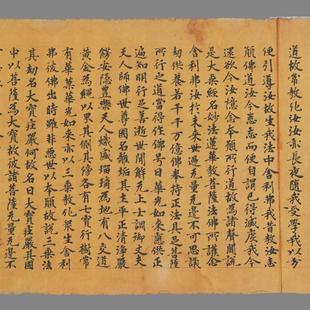 道故常教化汝汝亦長夜隨我受學我以方
便引導汝故生我法中舍利弗我昔教汝志
願佛道汝今悉忘而便自謂已得滅度我今
還欲令汝憶念本願所行道故為諸聲聞說
是大乘經名妙法蓮華教菩薩法佛所護念
舍利弗汝於未來世過無量無邊不可思議
劫供養若干千万億佛奉持正法具足菩薩所
行之道當得作佛號曰華光如來應供正
遍知明行足善逝世間解無上士調御丈夫
天人師佛世尊國名離垢其土平正清淨嚴
飾安隱豐樂天人熾盛瑠璃為地有八交道
黃金為繩以界其側其傍各有七寶行樹常
有華菓華光如來亦以三乘教化眾生舍利
弗彼佛出時雖非惡世以本願故說三乘法
其劫名大寶莊嚴何故名曰大寶莊嚴其國
中以菩薩為大寶故彼諸菩薩無量無邊不